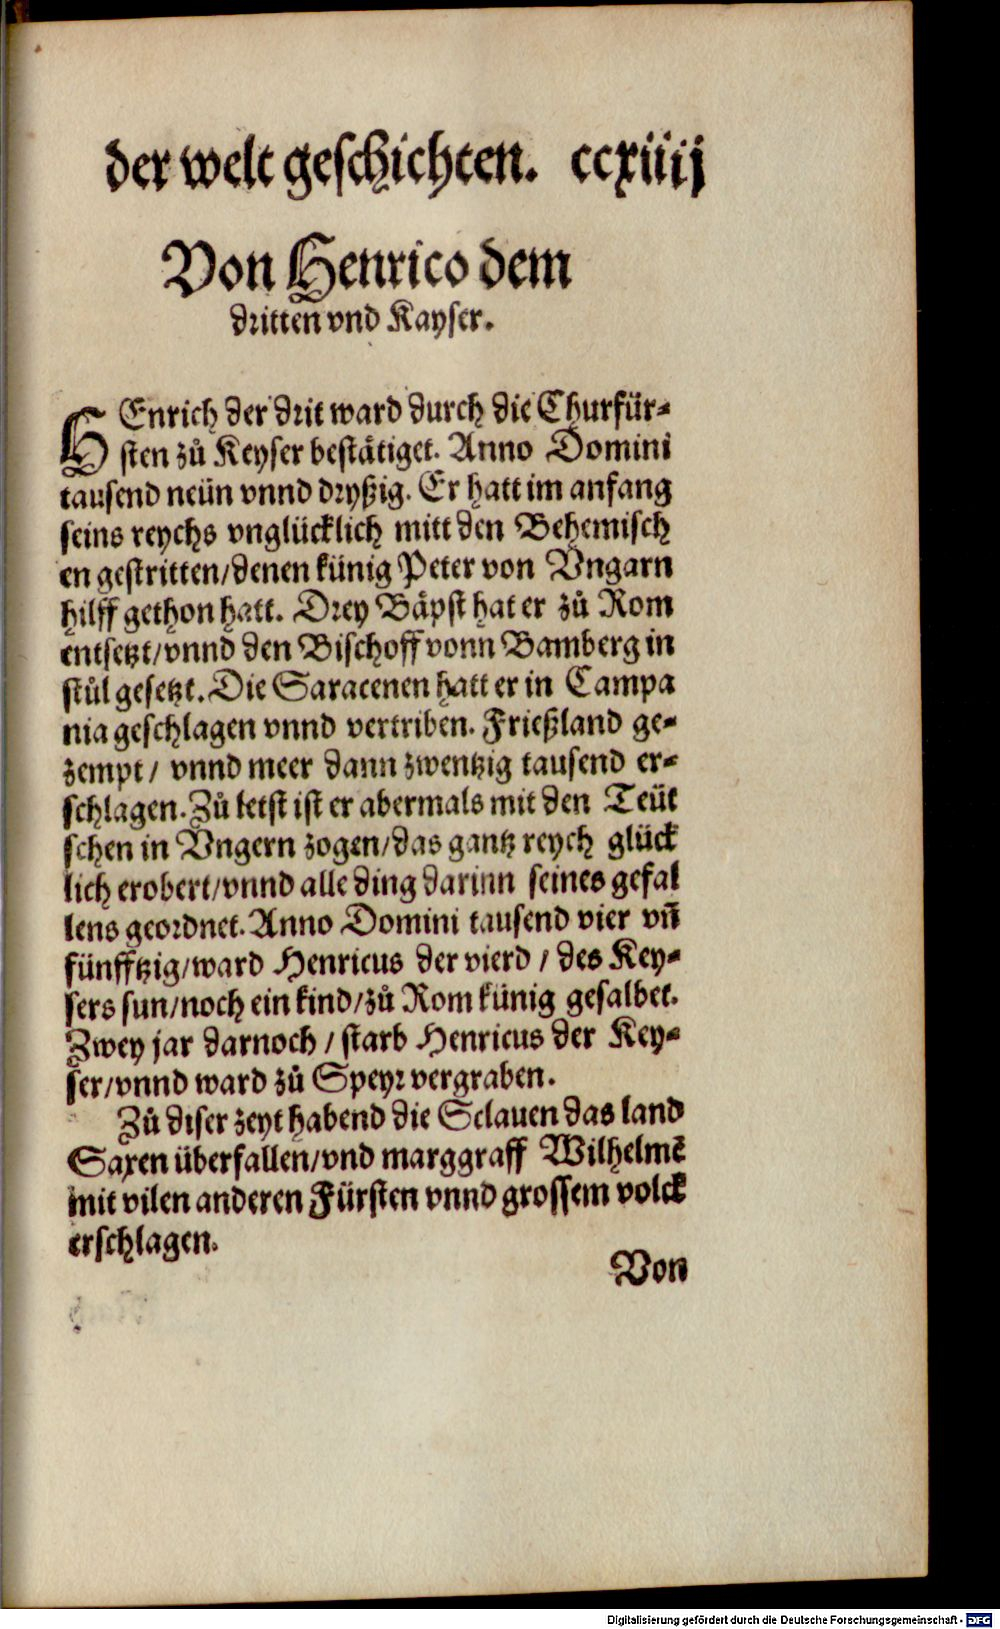 der welt geschichten. ccxiiij
Von Henrico dem
dritten vnd Kayser.
HEnrich der drit ward durch die Churfür-
sten zů Keyser bestätiget. Anno Domini
tausend neün vnnd dryßig. Er hatt im anfang
seins reychs vnglücklich mitt den Behemisch
en gestritten/denen künig Peter von Vngarn
hilff gethon hatt. Drey Bäpst hat er zů Rom
entsetzt/vnnd den Bischoff vonn Bamberg in
stůl gesetzt. Die Saracenen hatt er in Campa
nia geschlagen vnnd vertriben. Frießland ge-
zempt/ vnnd meer dann zwentzig tausend er-
schlagen. Zů letst ist er abermals mit den Teüt
schen in Vngern zogen/das gantz reych glück
lich erobert/vnnd alle ding darinn seines gefal
lens geordnet. Anno Domini tausend vier vñ
fünfftzig/ward Henricus der vierd / des Key-
sers sun/noch ein kind/zů Rom künig gesalbet.
Zwey jar darnoch / starb Henricus der Key-
ser/vnnd ward zů Speyr vergraben.
Zů diser zeyt habend die Sclauen das land
Saxen überfallen/vnd marggraff Wilhelmē
mit vilen anderen Fürsten vnnd grossem volck
erschlagen.
Von
Digitalisierung gefördert durch die Deutsche Forschungsgemeinschaft - DFG